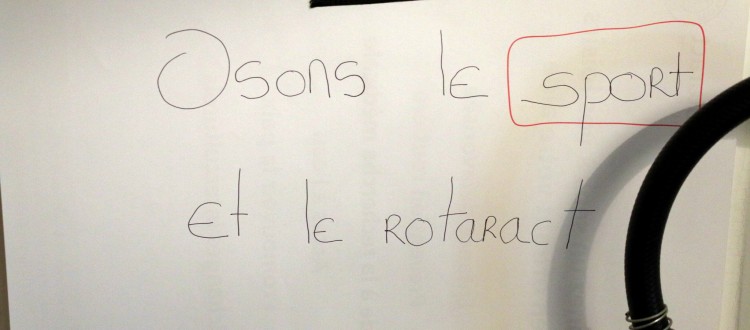 Osons le sport
et le rotaract